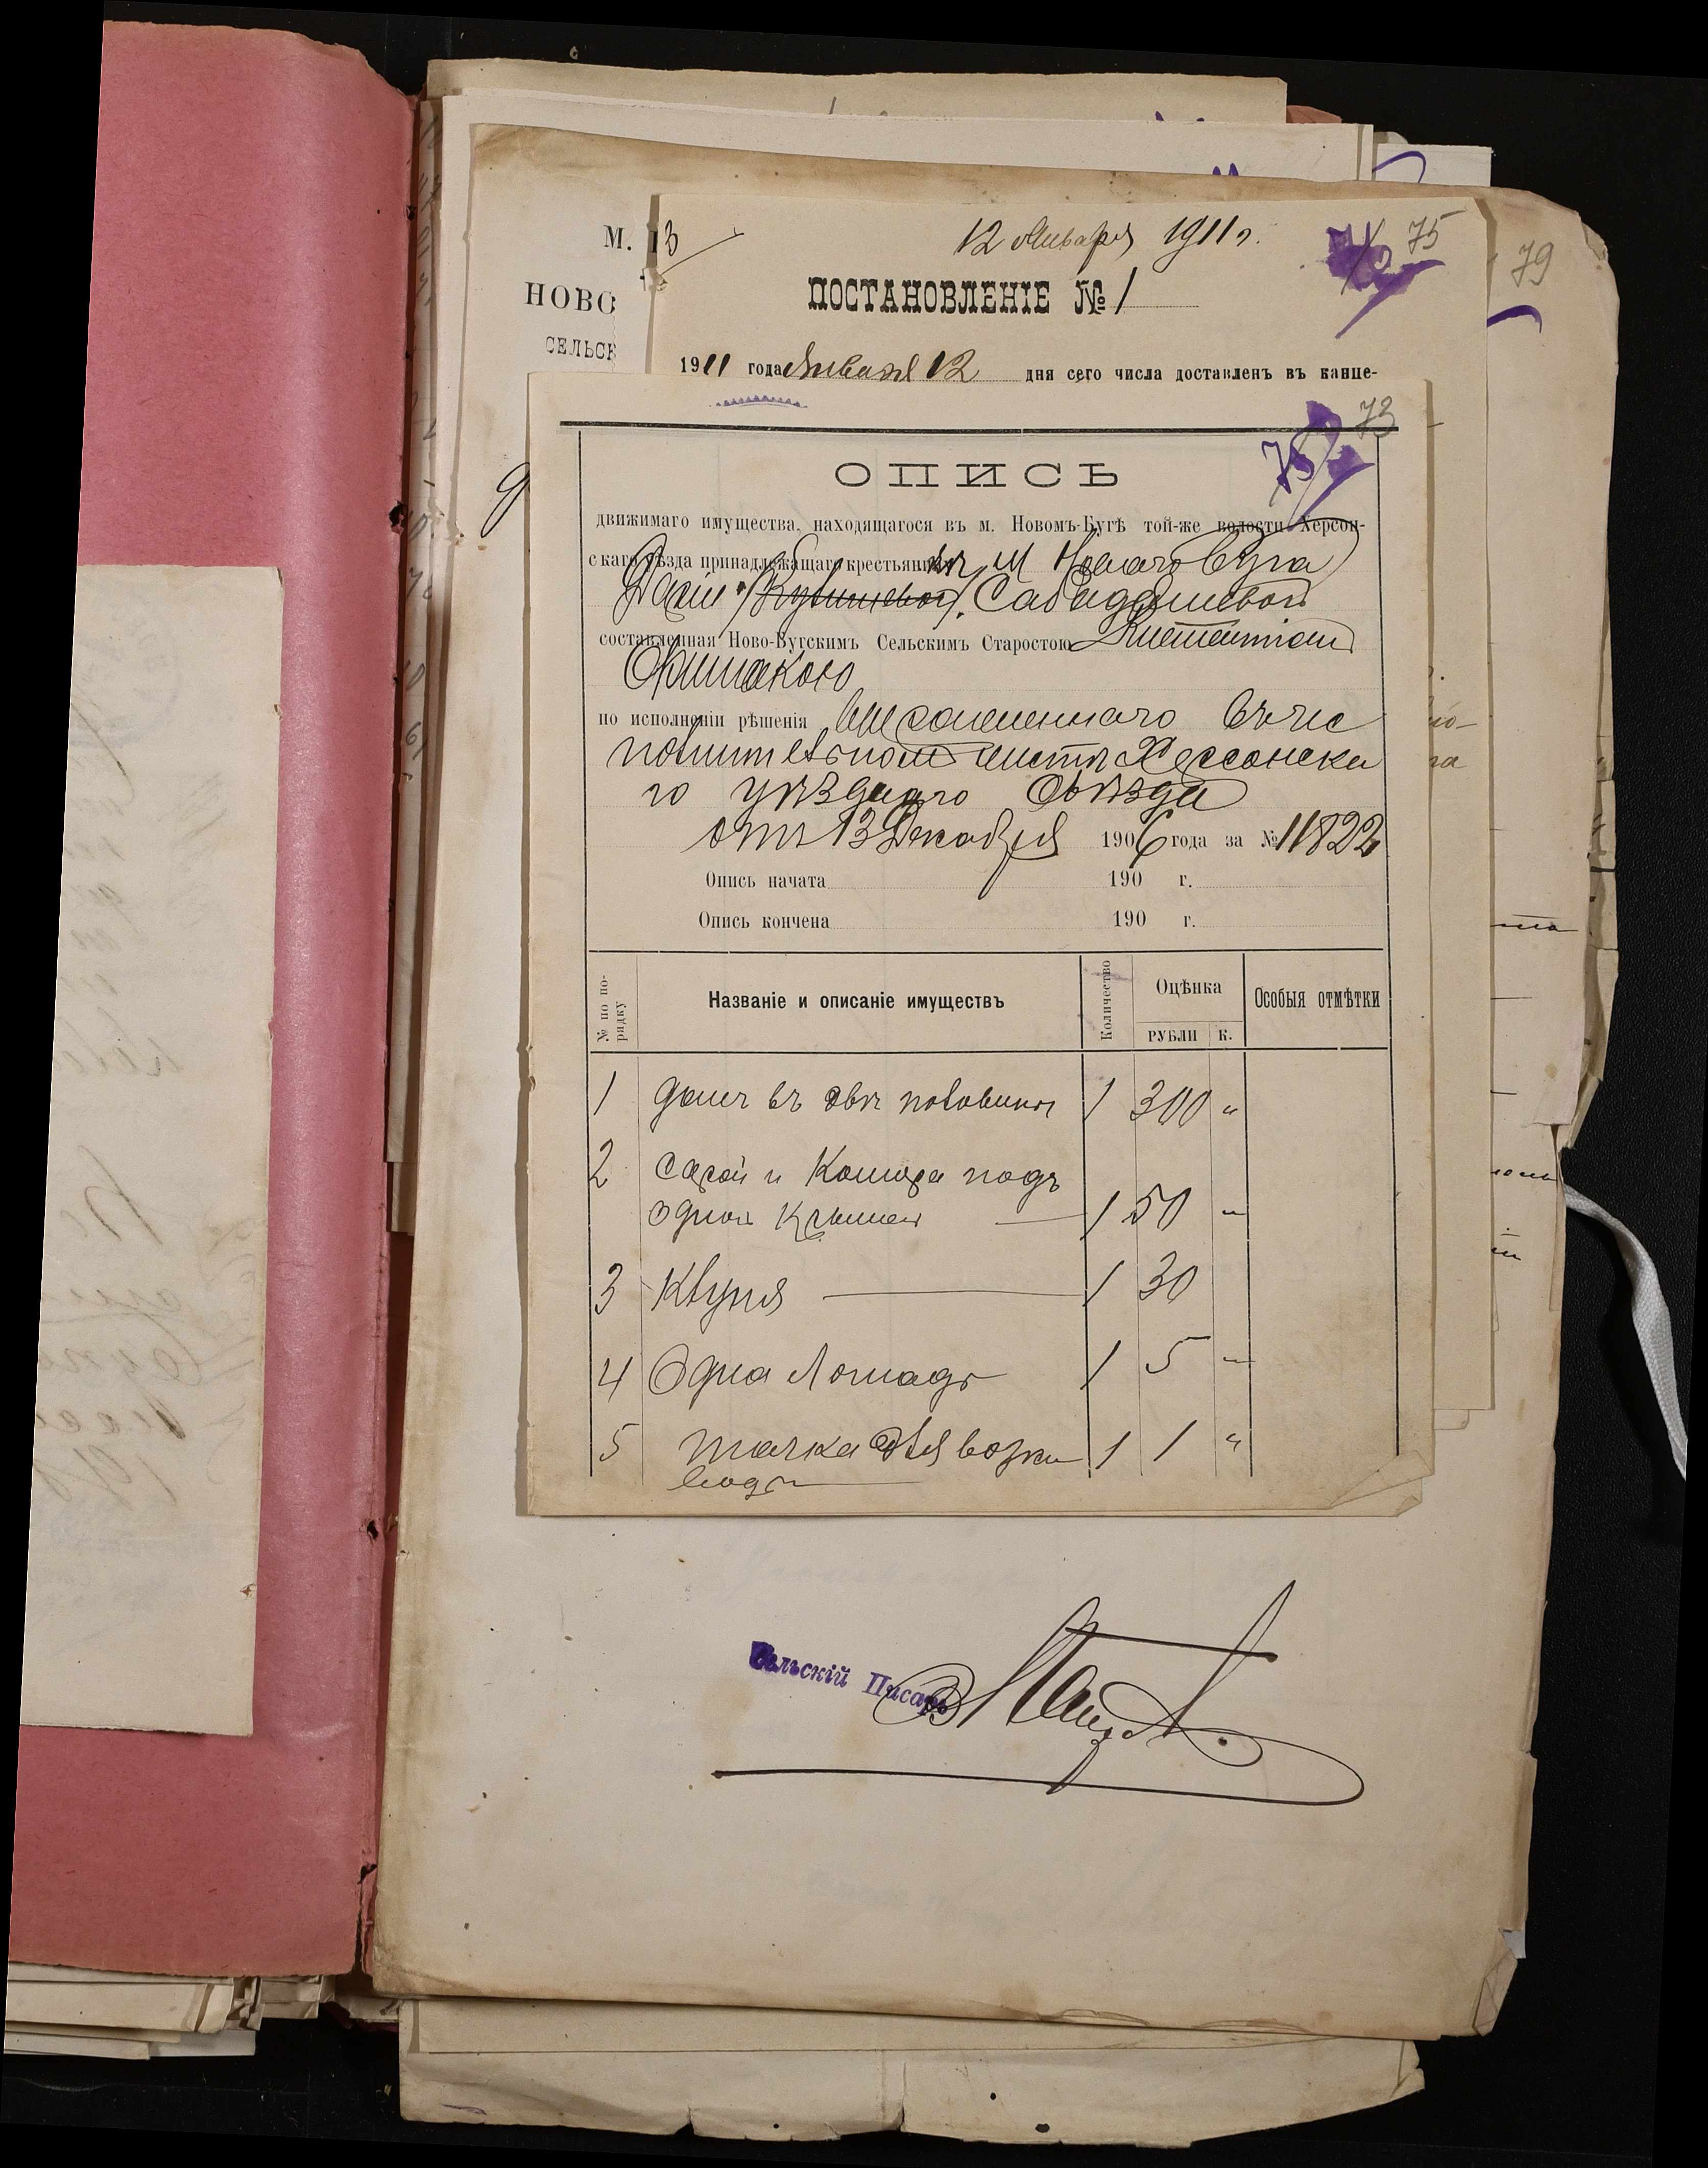 М. 13
12 Января 1911 г.
75
79
НОВО
СЕЛЬСК
ПОСТАНОВЛЕНІЕ № 1
1911 года Января 12 дня сего числа доставленъ въ канце-
73
75
ОПИСЬ
движимаго имущества, находящагося въ м. Новомъ-Бугѣ той-же волости Херсон-
скаго уѣзда принадлежащаго крестьянкѣ м Новаго Буга
Саба
составленная Ново-Бугскимъ Сельскимъ Старостою
по исполненіи рѣшенія
Херсонска
го уѣзднаго Съѣзда
отъ 13 Декабря 1906 года за № 11822
Опись начата 190 г.
Опись кончена 190 г.
№ по по-
рядку
Названіе и описаніе имуществъ
Количество
Оцѣнка
РУБЛИ К.
Особыя отмѣтки
1 домъ въ двѣ половины 1 300 "
2 Сарай и Кошара подъ
одной крышей 1 50 "
3 Клуня 1 30
4 Одна Лошадь 1 5 "
5 тачка для возки 1 1 "
воды
Сельскій Писарь